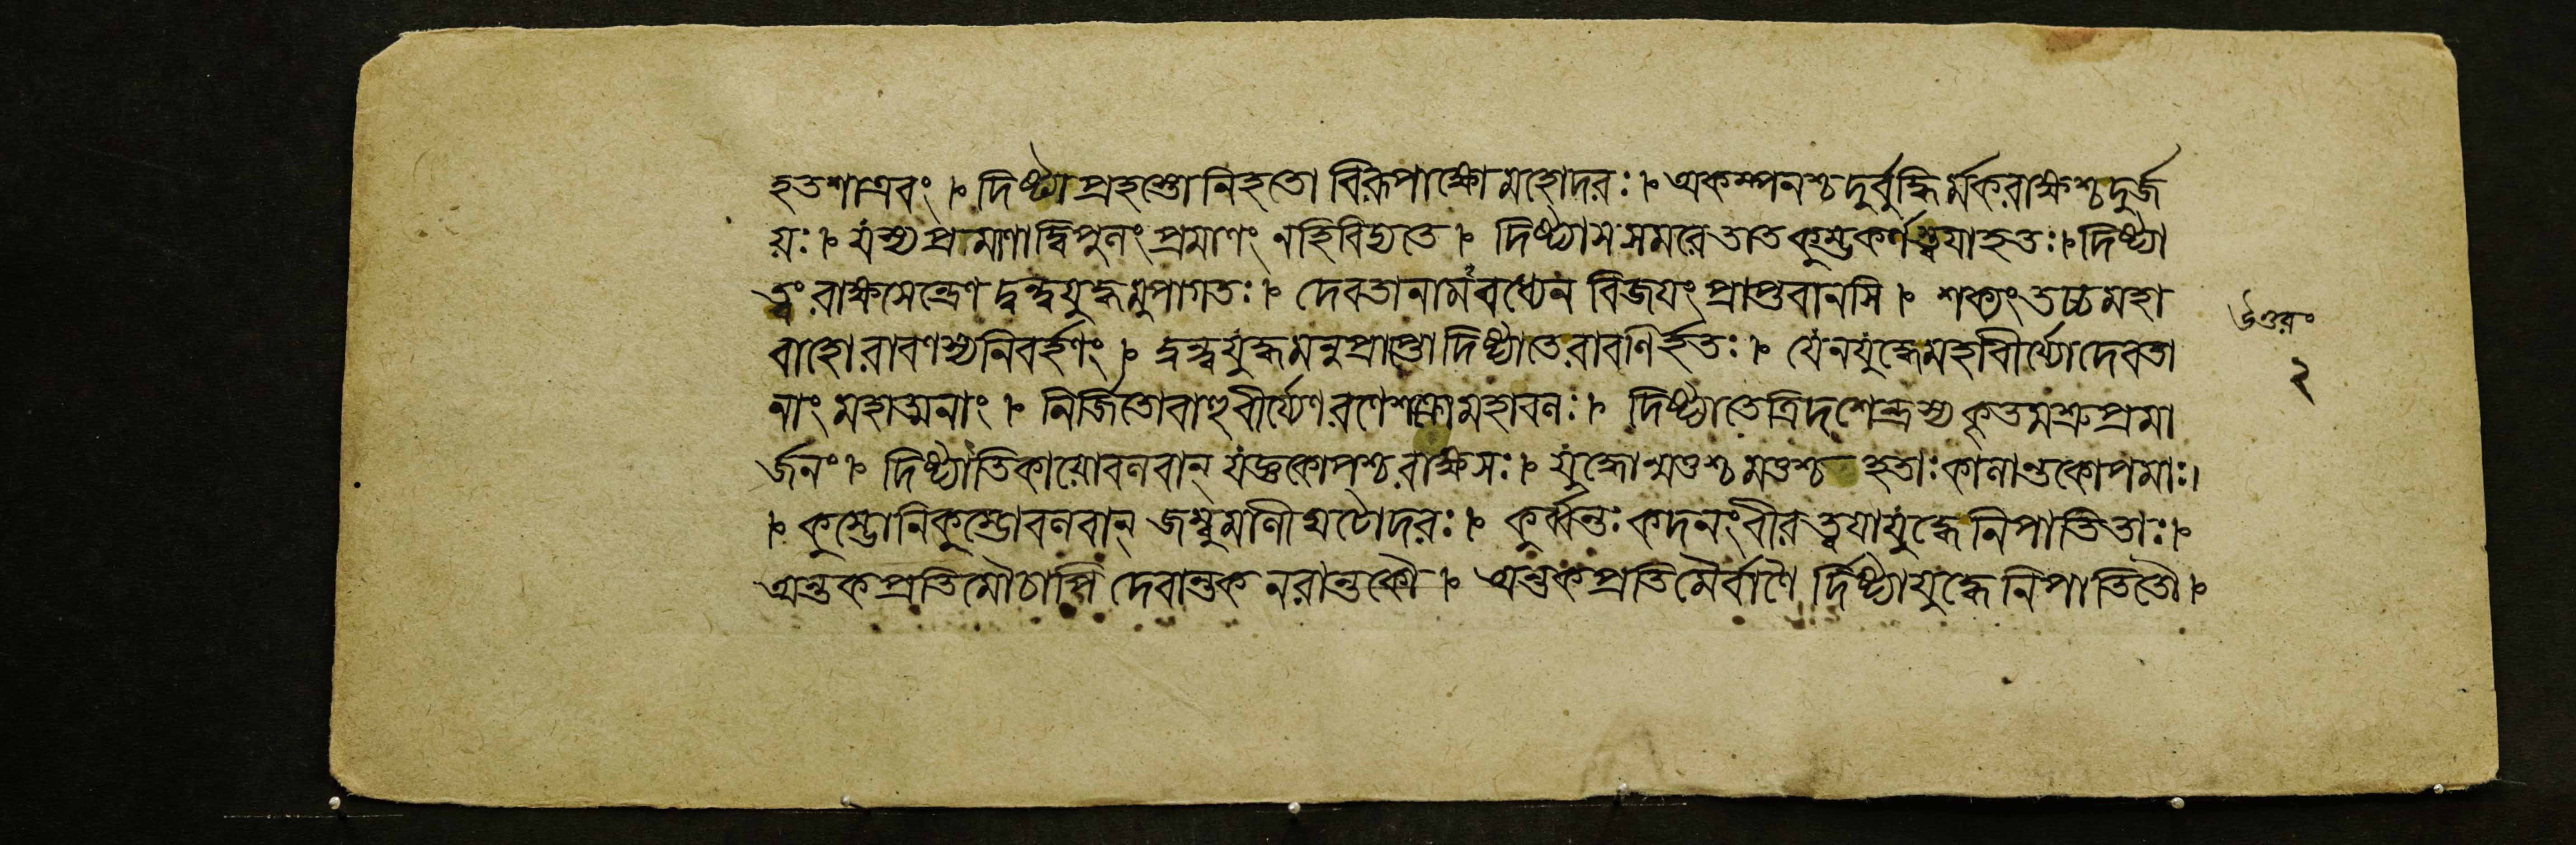 হতশাত্রবং ৷ দিষ্ট্যা প্রহস্তো নিহতো বিরূপাক্ষো মহোদরঃ ৷ অকম্পনশ্চ দুর্বুদ্ধির্মকরাক্ষশ্চ দুর্জ
য়ঃ ৷ যস্য প্রমাণাদ্বিপুলং প্রমাণং নহি বিদ্যতে ৷ দিষ্ট্যা স সমরে তাত কুম্ভকর্ণস্ত্বয়া হতঃ ৷ দিষ্ট্যা
ত্বং রাক্ষসেন্দ্রেণ দ্বন্দ্বযুদ্ধমুপাগতঃ ৷ দেবতানামবধ্যেন বিজয়ং প্রাপ্তবানসি ৷ শক্যং তচ্চ মহা
বাহো রাবণস্য নিবর্হণং ৷ দ্বন্দ্বযুদ্ধমনুপ্রাপ্তো দিষ্ট্যা তে রাবণির্হতঃ ৷ যেন যুদ্ধে মহাবীর্য্যো দেবতা
নাং মহাত্মনাং ৷ নির্জিতো বাহুবীর্য্যেণ রণে শক্রো মহাবলঃ ৷ দিষ্ট্যা তে ত্রিদশেন্দ্রস্য কৃতমশ্রুপ্রমা
র্জনং ৷ দিষ্ট্যাতিকায়ো বলবান্ যজ্ঞকোপশ্চ রাক্ষসঃ ৷ যুদ্ধোন্মত্তশ্চ মত্তশ্চ হতাঃ কালান্তকোপমাঃ।
৷ কুম্ভো নিকুম্ভো বলবান্ জম্বুমালী ঘটোদরঃ ৷ কুর্ব্বন্তঃ কদনং বীর ত্বয়া যুদ্ধে নিপাতিতাঃ ৷
অন্তকপ্রতিমৌ চাপি দেবান্তক নরান্তকৌ ৷ অন্তকপ্রতিমৈর্বাণৈ র্দিষ্ট্যা যুদ্ধে নিপাতিতৌ ৷
উত্তরং
২